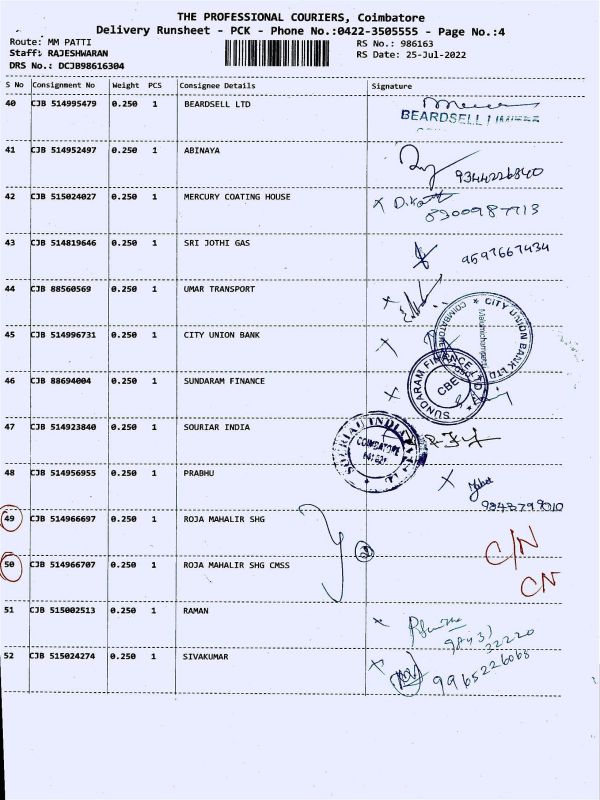 THE PROFESSIONAL COURIERS, Coimbatore
Delivery Runsheet - PCK - Phone No.:0422-3505555 - Page No.:4
Route: MM PATTI
RS No.: 986163
Staff: RAJESHWARAN
RS Date: 25-Jul-2022
DRS No.: DCJB98616304
S No Consignment No Weight PCS Consignee Details Signature
40 CJB 514995479 0.250 1 BEARDSELL LTD
BEARDSELL LIMITED
41 CJB 514952497 0.250 1 ABINAYA
9344226840
42 CJB 515024027 0.250 1 MERCURY COATING HOUSE
8300987713
43 CJB 514819646 0.250 1 SRI JOTHI GAS 9597667434
44 CJB 88560569 0.250 1 UMAR TRANSPORT
45 CJB 514996731 0.250 1 CITY UNION BANK
CITY UNION BANK LTD
COIMBATORE
46 CJB 88694004 0.250 1 SUNDARAM FINANCE
SUNDARAM FINANCE LTD
CBE
47 CJB 514923840 0.250 1 SOURIAR INDIA
SOURIAU INDIA
COIMBATORE
48 CJB 514956955 0.250 1 PRABHU
49 CJB 514966697 0.250 1 ROJA MAHALIR SHG
C/N
50 CJB 514966707 0.250 1 ROJA MAHALIR SHG CMSS
CN
51 CJB 515002513 0.250 1 RAMAN
98431
32220
52 CJB 515024274 0.250 1 SIVAKUMAR
9965226068